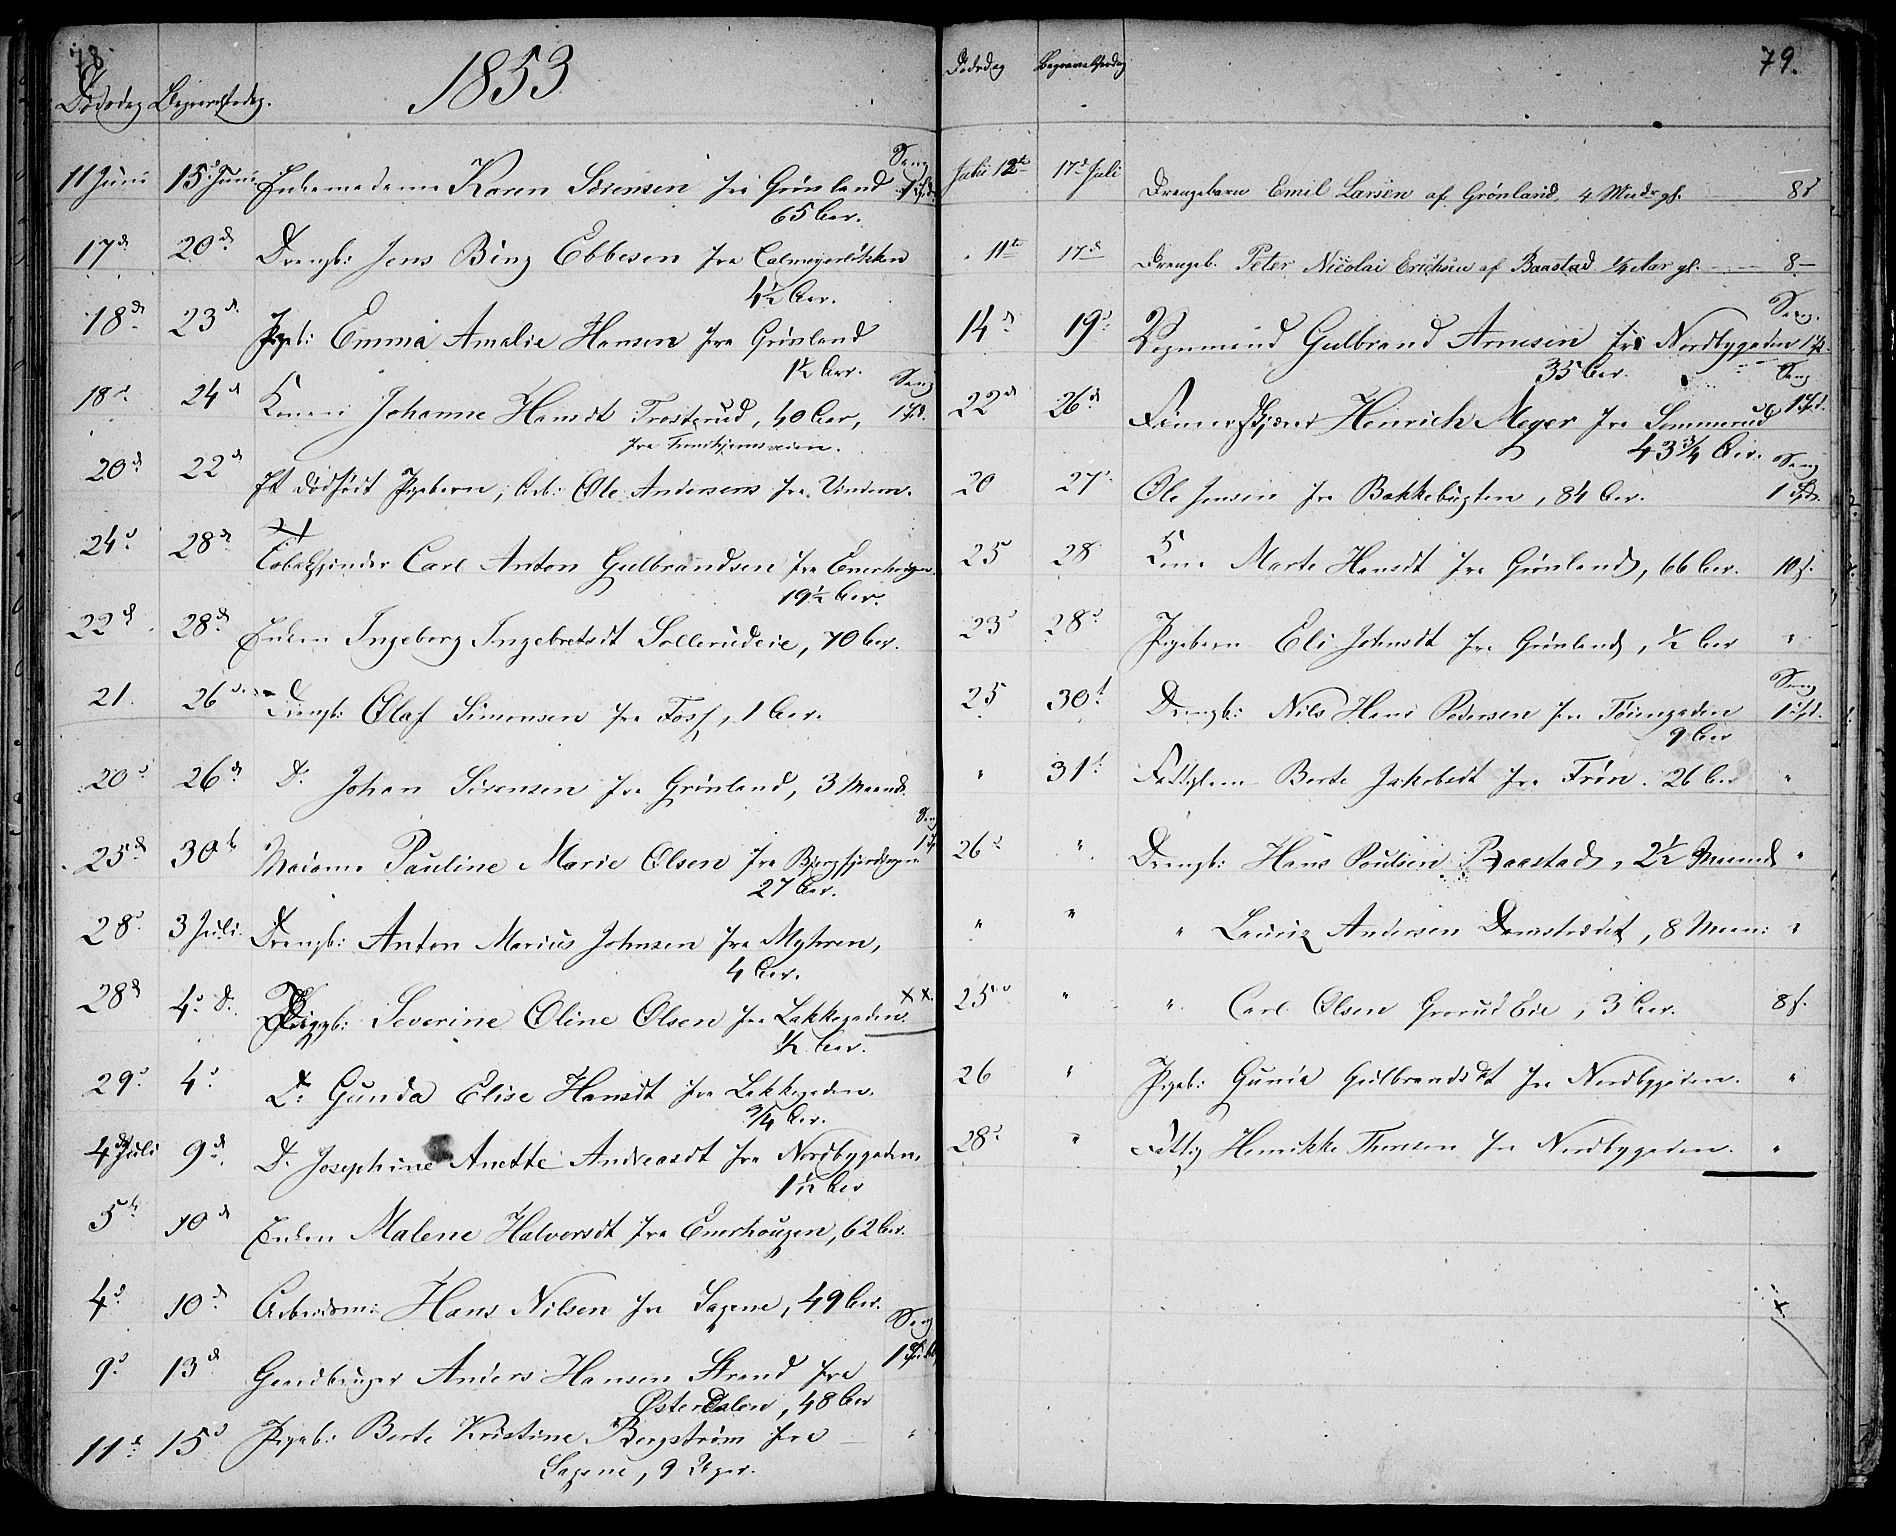 78.
1853
Dødsdag Begravelsesdag.
11 Juni 15d Juni Enkemadame Karen Sörensen fra Grønland Seng
65 Aar.
17d 20d Drengb: Jens Bing Ebbesen fra Calmeyerløkken
4½ Aar.
18d 23d Pigeb: Emma Amalie Hansen fra Grønland
1½ Aar.
18d 24d Konen Johanne Hansdt Trosterud, 40 Aar, Seng 1 Spd.
fra Trondhjemsveien.
20d 22d Et dødfødt Pigebarn, Arb: Ole Andersens fra Vindern.
24d 28d Tobakspinder Carl Anton Gulbrandsen fra Enerhougen
19½ Aar.
22d 28d Enken Ingeborg Ingebretsdt Sollerudeie, 70 Aar.
21. 26d Drengb: Olaf Simonsen fra Foss, 1 Aar.
20d 26d Do Johan Sörensen fra Grønland, 3 Maan.
25d 30te Madame Pauline Marie Olsen fra Seng
27 Aar.
28d 3 Juli. Drengb: Anton Marius Johnsen fra Myhren,
4 Aar.
28d 4d Do Pigeb: Severine Oline Olsen fra Lakkegaden. xx.
½ Aar.
29d 4d Do Gunda Elise Hansdt fra Lakkegaden.
¾ Aar.
4d Juli 9d Do Josephine Anette Andreasdt fra Nordbygaden.
1½ Aar
5te 10d Enken Malene Halvorsdt fra Enerhougen, 62 Aar.
4d 10d Arbeidsm: Hans Nilsen fra Sagene, 49 Aar.
9d 13d Gaardbruger Anders Hansen Strand fra Seng
Østerdalen, 48 Aar
11te 15d Pigeb: Berte Kristine Bergström fra "
Sagene, 9 Uger.
79.
Dødsdag Begravelsesdag
Julii 12te 17d Juli Drengebarn Emil Larsen af Grønland, 4 Mndr gl. 8s
11te 17d Drengeb. Peter Nicolai Erichsen af Baastad ¼ Aar gl. 8
14d 19d Vognmand Gulbrand Arnesen fra Nordbygaden Seng. 1 Spd.
35 Aar.
22d 26d Henrich Meyer fra Sommerud Seng 1 Spd.
43¾ Aar.
20 27d Ole Jensen fra Bakkebugten, 84 Aar. Seng 1 Spd.
25 28 Kone Marte Hansdt fra Grønland, 66 Aar. 10s.
23d 28d Pigebarn Eli Johnsdt fra Grønland, ½ Aar "
25 30te Drengb: Nils Hans Pedersen fra Tøiengaden Seng 1 Spd.
9 Aar
" 31te Fattiglem Berte Jakobsdt fra Frön. 26 Aar "
26d " Drengb: Hans Poulsen Baastad, 2½ Maand "
" " " Lauriz Andersen Damstrædet, 8 Maan: "
25d " " Carl Olsen Grorud Eie, 3 Aar. 8s.
26 " Pigeb: Gunia Gulbrandsdt fra Nordbygaden. "
28d " Fattig Henrikke Thoresen fra Nordbygaden. "